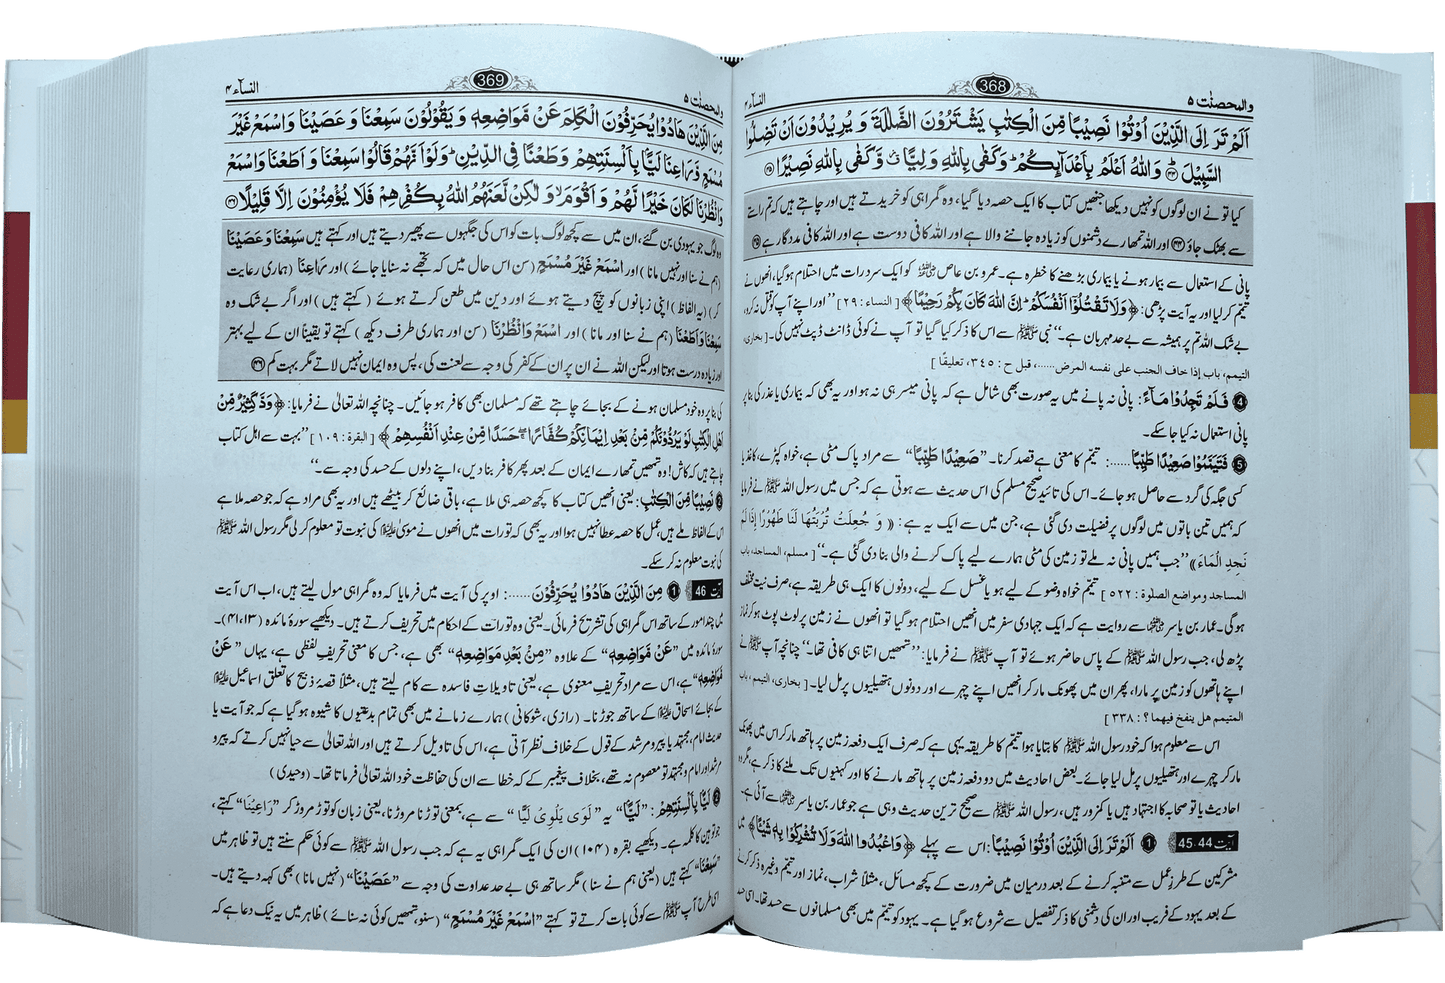 والمحصنٰت ۵
368
النساء ۴
اَلَمْ تَرَ اِلَى الَّذِيْنَ اُوْتُوْا نَصِيْبًا مِّنَ الْكِتٰبِ يَشْتَرُوْنَ الضَّلٰلَةَ وَ يُرِيْدُوْنَ اَنْ تَضِلُّوا
السَّبِيْلَ ﴿۴۴﴾ وَاللّٰهُ اَعْلَمُ بِاَعْدَآىِٕكُمْ وَكَفٰى بِاللّٰهِ وَلِيًّا وَّكَفٰى بِاللّٰهِ نَصِيْرًا ﴿۴۵﴾
کیا تو نے ان لوگوں کو نہیں دیکھا جنھیں کتاب کا ایک حصہ دیا گیا، وہ گمراہی کو خریدتے ہیں اور چاہتے ہیں کہ تم راستے
سے بھٹک جاؤ ﴿۴۴﴾ اور اللہ تمھارے دشمنوں کو زیادہ جاننے والا ہے اور اللہ کافی دوست ہے اور اللہ کافی مددگار ہے ﴿۴۵﴾
پانی کے استعمال سے بیمار ہونے یا بیماری بڑھنے کا خطرہ ہے۔ عمرو بن عاص ؓ کو ایک سرد رات میں احتلام ہوگیا، انھوں نے
تیمم کر لیا اور یہ آیت پڑھی: ﴿وَلَا تَقْتُلُوْۤا اَنْفُسَكُمْ اِنَّ اللّٰهَ كَانَ بِكُمْ رَحِيْمًا﴾ [النساء : ۲۹] ”اور اپنے آپ کو قتل نہ کرو،
بے شک اللہ تم پر ہمیشہ سے بے حد مہربان ہے۔“ نبی ﷺ سے اس کا ذکر کیا گیا تو آپ نے کوئی ڈانٹ ڈپٹ نہیں کی۔ [بخاری،
التيمم، باب إذا خاف الجنب على نفسه المرض......، قبل ح : ۳۴۵، تعليقًا ]
4 فَلَمْ تَجِدُوْا مَآءً: پانی نہ پانے میں یہ صورت بھی شامل ہے کہ پانی میسر ہی نہ ہو اور یہ بھی کہ بیماری یا عذر کی بنا پر
پانی استعمال نہ کیا جا سکے۔
5 فَتَيَمَّمُوْا صَعِيْدًا طَيِّبًا......: تیمم کا معنی ہے قصد کرنا۔ ”صَعِيْدًا طَيِّبًا“ سے مراد پاک مٹی ہے، خواہ کپڑے، کاغذ یا
کسی جگہ کی گرد سے حاصل ہو جائے۔ اس کی تائید صحیح مسلم کی اس حدیث سے ہوتی ہے کہ جس میں رسول اللہ ﷺ نے فرمایا
کہ ہمیں تین باتوں میں لوگوں پر فضیلت دی گئی ہے، جن میں سے ایک یہ ہے: « وَ جُعِلَتْ تُرْبَتُهَا لَنَا طَهُوْرًا إِذَا لَمْ
نَجِدِ الْمَاءَ » ”جب ہمیں پانی نہ ملے تو زمین کی مٹی ہمارے لیے پاک کرنے والی بنا دی گئی ہے۔“ [ مسلم، المساجد، باب
المساجد ومواضع الصلوة : ۵۲۲ ] تیمم خواہ وضو کے لیے ہو یا غسل کے لیے، دونوں کا ایک ہی طریقہ ہے، صرف نیت مختلف
ہوگی۔ عمار بن یاسر ؓ سے روایت ہے کہ ایک جہادی سفر میں انھیں احتلام ہو گیا تو انھوں نے زمین پر لوٹ پوٹ ہو کر نماز
پڑھ لی، جب رسول اللہ ﷺ کے پاس حاضر ہوئے تو آپ ﷺ نے فرمایا: ”تمھیں اتنا ہی کافی تھا۔“ چنانچہ آپ ﷺ نے
اپنے ہاتھوں کو زمین پر مارا، پھر ان میں پھونک مار کر انھیں اپنے چہرے اور دونوں ہتھیلیوں پر مل لیا۔ [ بخاری، التيمم ، باب
المتيمم هل ينفخ فيهما ؟ : ۳۳۸ ]
اس سے معلوم ہوا کہ خود رسول اللہ ﷺ کا بتایا ہوا تیمم کا طریقہ یہی ہے کہ صرف ایک دفعہ زمین پر ہاتھ مار کر اس میں پھونک
مار کر چہرے اور ہتھیلیوں پر مل لیا جائے۔ بعض احادیث میں دو دفعہ زمین پر ہاتھ مارنے کا اور کہنیوں تک ملنے کا ذکر ہے، مگر وہ
احادیث یا تو صحابہ کا اجتہاد ہیں یا کمزور ہیں، رسول اللہ ﷺ سے صحیح ترین حدیث وہی ہے جو عمار بن یاسر ؓ سے آئی ہے۔
آیت 45،44 1 اَلَمْ تَرَ اِلَى الَّذِيْنَ اُوْتُوْا نَصِيْبًا: اس سے پہلے ﴿وَاعْبُدُوا اللّٰهَ وَلَا تُشْرِكُوْا بِهٖ شَيْـًٔا﴾ میں
مشرکین کے طرزِ عمل سے متنبہ کرنے کے بعد درمیان میں ضرورت کے کچھ مسائل، مثلاً شراب، نماز اور تیمم وغیرہ ذکر کرنے
کے بعد یہود کے فریب اور ان کی دشمنی کا ذکر تفصیل سے شروع ہو گیا ہے۔ یہود کو تیمم میں بھی مسلمانوں سے حسد تھا۔ اسی حسد
والمحصنٰت ۵
369
النساء ۴
مِنَ الَّذِيْنَ هَادُوْا يُحَرِّفُوْنَ الْكَلِمَ عَنْ مَّوَاضِعِهٖ وَ يَقُوْلُوْنَ سَمِعْنَا وَ عَصَيْنَا وَاسْمَعْ غَيْرَ
مُسْمَعٍ وَّرَاعِنَا لَيًّۢا بِاَلْسِنَتِهِمْ وَطَعْنًا فِى الدِّيْنِ وَلَوْ اَنَّهُمْ قَالُوْا سَمِعْنَا وَ اَطَعْنَا وَاسْمَعْ
وَانْظُرْنَا لَكَانَ خَيْرًا لَّهُمْ وَ اَقْوَمَ وَ لٰكِنْ لَّعَنَهُمُ اللّٰهُ بِكُفْرِهِمْ فَلَا يُؤْمِنُوْنَ اِلَّا قَلِيْلًا ﴿۴۶﴾
وہ لوگ جو یہودی بن گئے، ان میں سے کچھ لوگ بات کو اس کی جگہوں سے پھیر دیتے ہیں اور کہتے ہیں سَمِعْنَا وَ عَصَيْنَا
(ہم نے سنا اور نہیں مانا) اور اسْمَعْ غَيْرَ مُسْمَعٍ (سن اس حال میں کہ تجھے نہ سنایا جائے) اور رَاعِنَا (ہماری رعایت
کر) (یہ الفاظ) اپنی زبانوں کو پیچ دیتے ہوئے اور دین میں طعن کرتے ہوئے (کہتے ہیں) اور اگر بے شک وہ
سَمِعْنَا وَاَطَعْنَا (ہم نے سنا اور مانا) اور اسْمَعْ وَانْظُرْنَا (سن اور ہماری طرف دیکھ) کہتے تو یقیناً ان کے لیے بہتر
اور زیادہ درست ہوتا اور لیکن اللہ نے ان پر ان کے کفر کی وجہ سے لعنت کی، پس وہ ایمان نہیں لاتے مگر بہت کم ﴿۴۶﴾
کی بنا پر وہ خود مسلمان ہونے کے بجائے چاہتے تھے کہ مسلمان بھی کافر ہو جائیں۔ چنانچہ اللہ تعالیٰ نے فرمایا: ﴿وَدَّ كَثِيْرٌ مِّنْ
اَهْلِ الْكِتٰبِ لَوْ يَرُدُّوْنَكُمْ مِّنْۢ بَعْدِ اِيْمَانِكُمْ كُفَّارًا حَسَدًا مِّنْ عِنْدِ اَنْفُسِهِمْ ﴾ [ البقرة : ۱۰۹ ] ”بہت سے اہل کتاب
چاہتے ہیں کہ کاش! وہ تمھیں تمھارے ایمان کے بعد پھر کافر بنا دیں، اپنے دلوں کے حسد کی وجہ سے۔“
2 نَصِيْبًا مِّنَ الْكِتٰبِ: یعنی انھیں کتاب کا کچھ حصہ ہی ملا ہے، باقی ضائع کر بیٹھے ہیں اور یہ بھی مراد ہے کہ جو حصہ ملا ہے
اس کے الفاظ ملے ہیں، عمل کا حصہ عطا نہیں ہوا اور یہ بھی کہ تورات میں انھوں نے موسیٰ علیہ السلام کی نبوت تو معلوم کر لی مگر رسول اللہ ﷺ
کی نبوت معلوم نہ کر سکے۔
آیت 46 1 مِنَ الَّذِيْنَ هَادُوْا يُحَرِّفُوْنَ......: اوپر کی آیت میں فرمایا کہ وہ گمراہی مول لیتے ہیں، اب اس آیت
میں چند امور کے ساتھ اس گمراہی کی تشریح فرمائی۔ یعنی وہ تورات کے احکام میں تحریف کرتے ہیں۔ دیکھیے سورۂ مائدہ (۴۱،۱۳)۔
سورۂ مائدہ میں ”عَنْ مَّوَاضِعِهٖ“ کے علاوہ ”مِنْۢ بَعْدِ مَوَاضِعِهٖ“ بھی ہے، جس کا معنی تحریف لفظی ہے، یہاں ”عَنْ
مَّوَاضِعِهٖ“ ہے، اس سے مراد تحریف معنوی ہے، یعنی تاویلاتِ فاسدہ سے کام لیتے ہیں، مثلاً قصۂ ذبیح کا تعلق اسماعیل علیہ السلام
کے بجائے اسحاق علیہ السلام کے ساتھ جوڑنا۔ (رازی، شوکانی) ہمارے زمانے میں بھی تمام بدعتیوں کا شیوہ ہو گیا ہے کہ جو آیت یا
حدیث امام، مجتہد یا پیر و مرشد کے قول کے خلاف نظر آتی ہے، اس کی تاویل کرتے ہیں اور اللہ تعالیٰ سے حیا نہیں کرتے کہ پیر و
مرشد اور امام و مجتہد تو معصوم نہ تھے، بخلاف پیغمبر کے کہ خطا سے ان کی حفاظت خود اللہ تعالیٰ فرماتا تھا۔ (وحیدی)
2 لَيًّۢا بِاَلْسِنَتِهِمْ: ”لَيًّا“ یہ ”لَوَى يَلْوِىْ لَيًّا“ سے ہے، بمعنی توڑنا مروڑنا، یعنی زبان کو توڑ مروڑ کر ”رَاعِيْنَا“ کہتے،
جو توہین کا کلمہ ہے۔ دیکھیے بقرہ (۱۰۴) ان کی ایک گمراہی یہ ہے کہ جب رسول اللہ ﷺ سے کوئی حکم سنتے ہیں تو ظاہر میں
”سَمِعْنَا“ کہتے ہیں (یعنی ہم نے سنا) مگر ساتھ ہی بے حد عداوت کی وجہ سے ”عَصَيْنَا“ (نہیں مانا) بھی کہہ دیتے ہیں۔
اسی طرح آپ ﷺ سے کوئی بات کرتے تو کہتے ”اسْمَعْ غَيْرَ مُسْمَعٍ“ (سنو، تمھیں کوئی نہ سنائے) ظاہر میں یہ نیک دعا ہے کہ